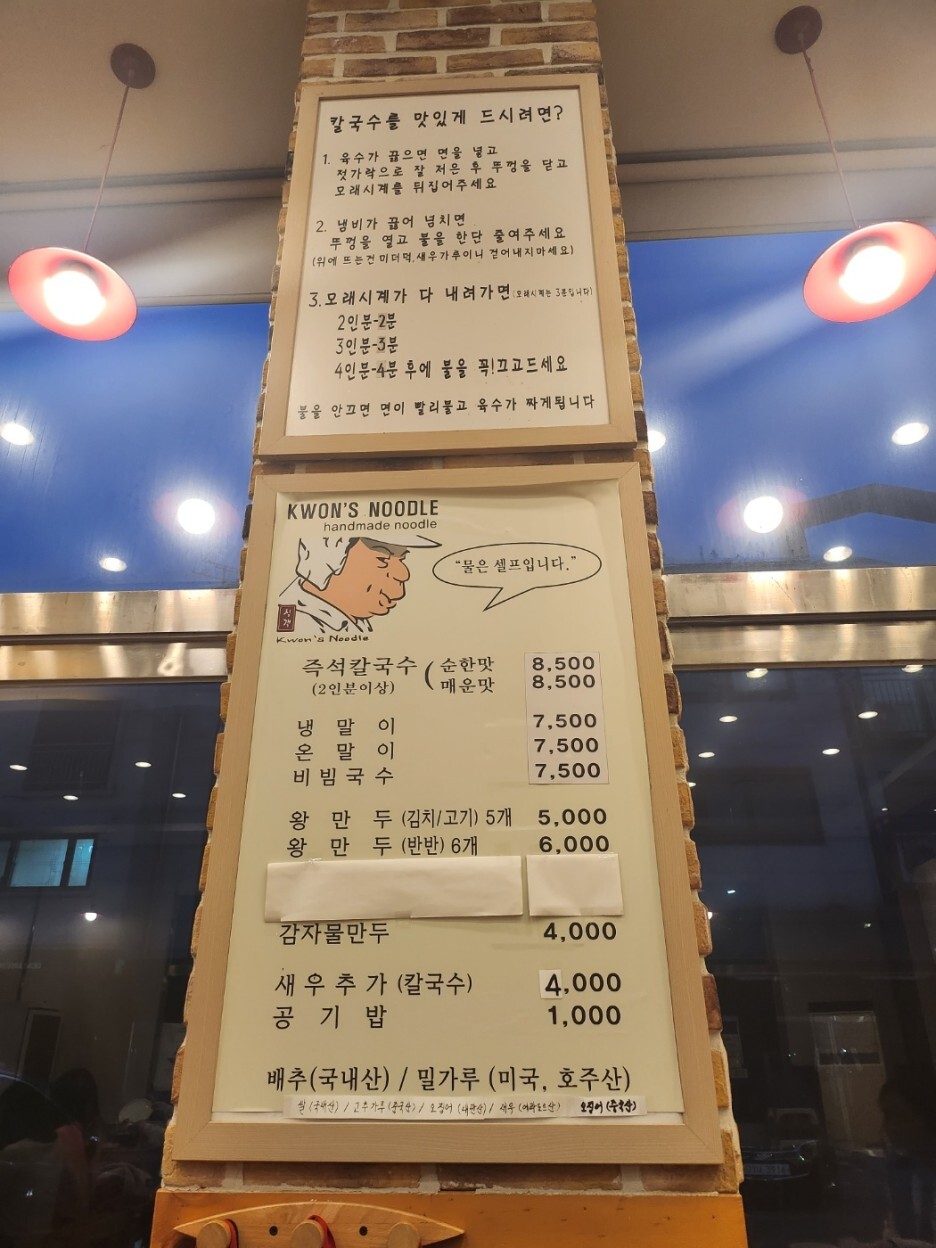 칼국수를 맛있게 드시려면?
1. 육수가 끓으면 면을 넣고
젓가락으로 잘 저은 후 뚜껑을 닫고
모래시계를 뒤집어주세요
2. 냄비가 끓어 넘치면
뚜껑을 열고 불을 한단 줄여주세요
(위에 뜨는건 미더덕, 새우가루이니 걷어내지마세요)
3. 모래시계가 다 내려가면 (모래시계는 3분입니다)
2인분-2분
3인분-3분
4인분-4분 후에 불을 꼭!끄고드세요
불을 안끄면 면이 빨리불고 육수가 짜게됩니다
KWON'S NOODLE
handmade noodle
"물은 셀프입니다."
식객
Kwon's Noodle
즉석칼국수 ( 순한맛 8,500
(2인분이상) 매운맛 8,500
냉 말 이 7,500
온 말 이 7,500
비빔국수 7,500
왕 만 두 (김치/고기) 5개 5,000
왕 만 두 (반반) 6개 6,000
감자물만두 4,000
새우추가 (칼국수) 4,000
공 기 밥 1,000
배추(국내산) / 밀가루 (미국, 호주산)
쌀 (국내산) / 고추가루 (중국산) / 오징어 (대만산) / 새우 오징어 (중국산)